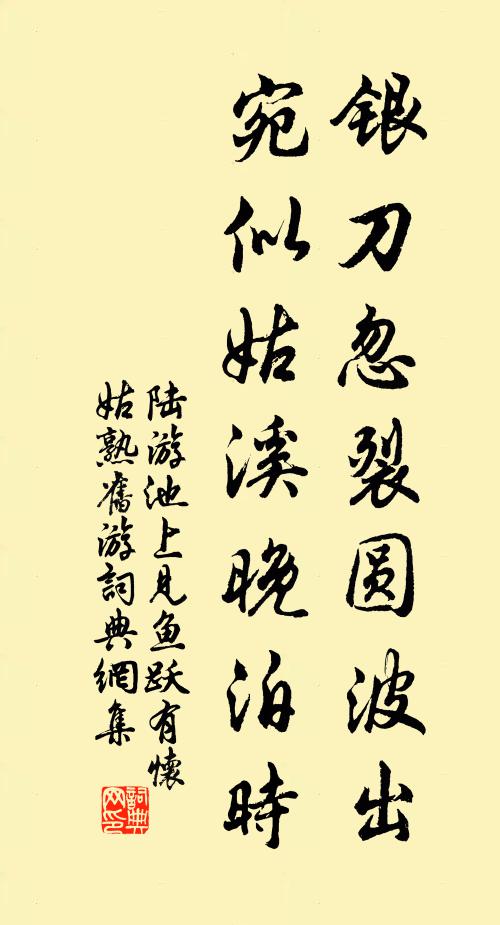 银刀忽裂圆波出
宛似姑溪晚泊時
陆游池上見魚跃有懷
姑熟舊游詞典網集
詞典
网印